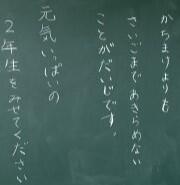 かちまけよりも
さいごまであきらめない
ことがだいじです。
元気いっぱいの
2年生をみせてください